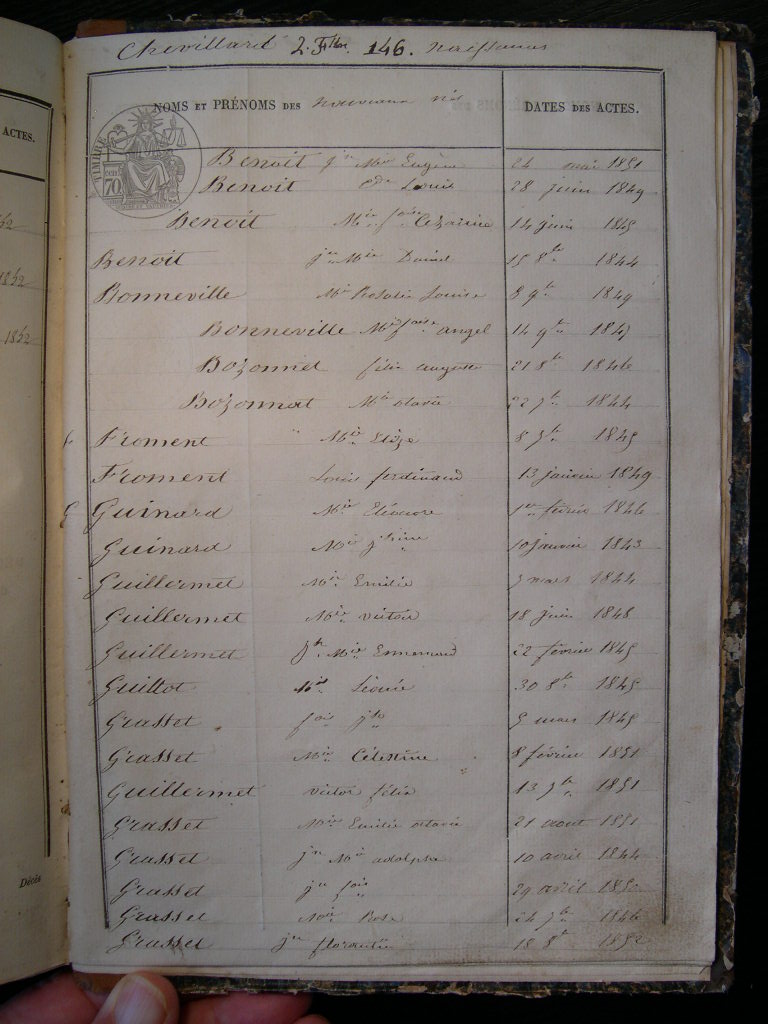 Chevillard 2. 146. Naissances
ACTES.
NOMS ET PRÉNOMS DES nouveaux nés
DATES DES ACTES.
TIMBRE
70
Benoit Jn Mie Eugène 24 mai 1851
Benoit Louis 28 juin 1849
Benoit Mie foise Cezarine 14 juin 1845
Benoit jn Mie Daniel 15 8bre 1844
Bonneville Mie Rosalie Louise 8 9bre 1849
Bonneville Mie foise angel 14 9bre 1845
Bozonnet félix auguste 21 8bre 1846
Bozonnat Mie otavie 22 7bre 1844
f Froment " Mie Elize 8 7bre 1845
Froment Louis ferdinand 13 janvier 1849
G Guinard Mie Eléonore 1er février 1846
Guinard Mie jhine 10 janvier 1843
Guillermet Mie Emilie 3 mars 1844
Guillermet Mie victoire 18 juin 1848
Guillermet Jh Mie Ennemond 22 février 1845
Guittot Mie Léonie 30 8bre 1845
Grasset fois jh 5 mars 1845
Grasset Mie Célestine 8 février 1851
Guillermet victor félix 13 7bre 1851
Grasset Mie Emilie otavie 21 aout 1851
Grasset jn Mie adolphe 10 avril 1844
Grasset jn fois 29 avril 1850
Grasset Mie Rose 24 7bre 1846
Grasset jn florentin 18 8bre 1852
1852
1852
1852
Décès